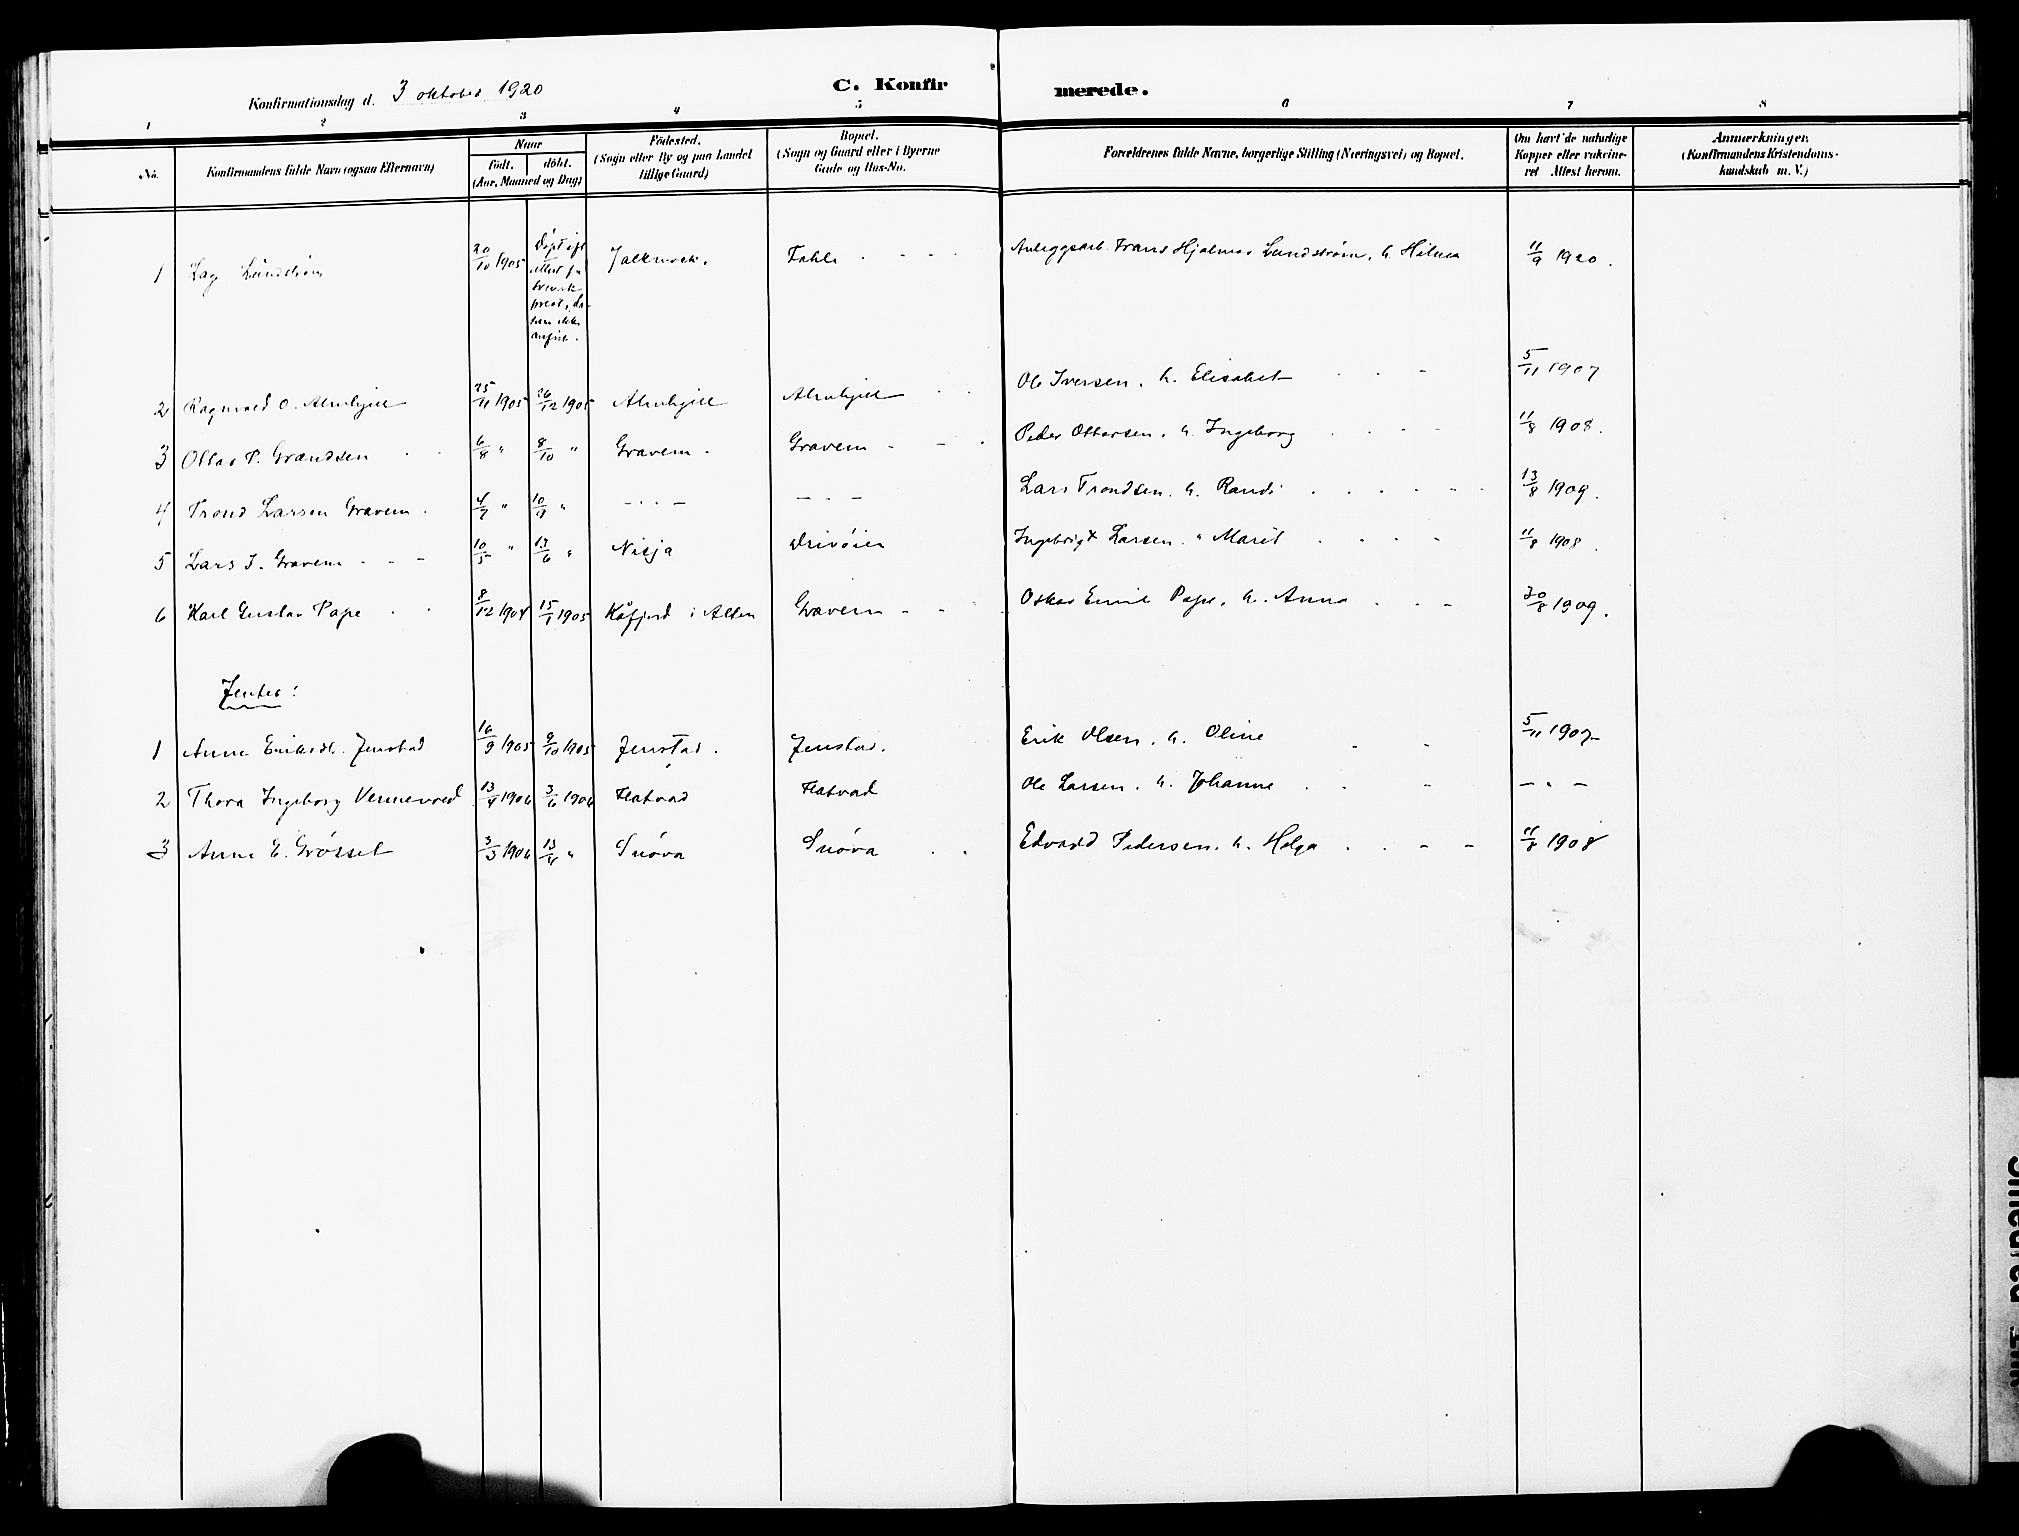 Konfirmationsdag d. 3 oktober 1920 C. Konfirmerede.
1 2 3 4 5 6 7 8
No. Konfirmandens fulde Navn (ogsaa Efternavn) Naar født. døbt. (Aar, Maaned og Dag) Fødested. (Sogn eller By og paa Landet tillige Gaard) Bopæl. (Sogn og Gaard eller i Byerne Gade og Hus-No. Forældrenes fulde Navne, borgerlige Stilling (Næringsvei) og Bopæl. Om havt de naturlige Kopper eller vakcineret Attest herom. Anmærkninger. (Konfirmandens Kristendomskundskab m. V.)
1 Lundström 20/10 1905 Döpt prest, ikke Jokkmock. Fahle Anleggsarb. Frans Hjalmar Lundström, h. Hilma 11/9 1920.
2 Ragnvald O. Almskjell 25/11 1905 26/12 1905 Ole Iversen. h. Elisabet 5/11 1907
3 Ottar P. 6/8 " 8/10 " Gravem Gravem Peder Ottersen. h. Ingeborg 11/8 1908.
4 Trond Larsen Gravem. 4/7 " " — . . — — . — Lars Trondsen. h. Randi 13/8 1909.
5 Lars I. Gravem 10/5 " 13/6 " Nisja Drivöien Ingebrigt Larsen. " Marit 11/8 1908.
6 Karl Gustav Pape 8/12 1904 15/1 1905 Kåfjord i Alten Gravem Oskar Emil Pape. h. Anna 30/8 1909.
Jenter:
1 Anne Eriksdt. Jenstad 16/9 1905 9/10 1905 Jenstad. Jenstad. Erik Olsen. h. Oline 5/11 1907
2 Thora Ingeborg Vennevold 13/4 1906 3/6 1906 Flatvad Flatvad Ole Larsen. h. Johanne — " —
3 Anne E. Grösset 3/3 1906 13/4 " Snöva Snöva Edvard Pedersen. h. Helga 11/8 1908